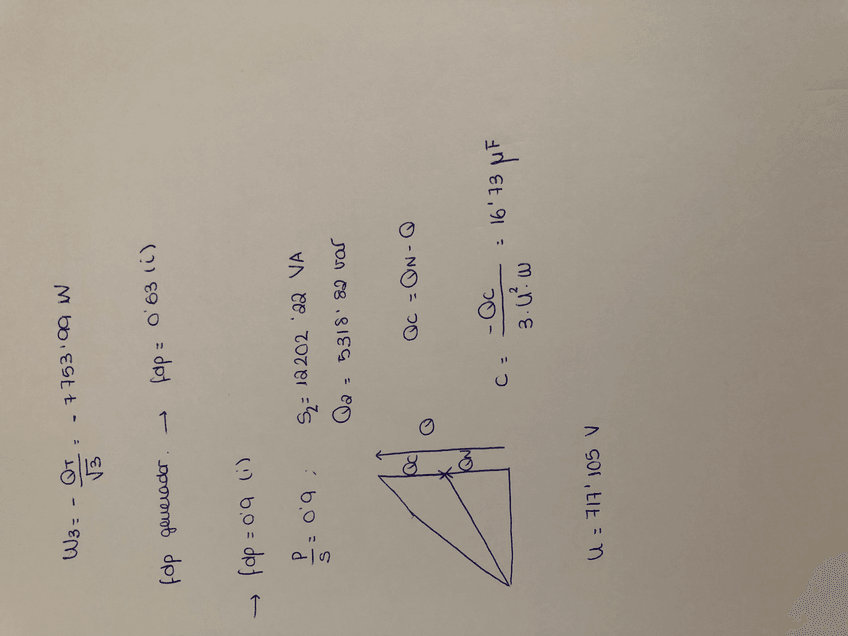 W3 = - QT / √3 = - 7753'99 W
fdp generador. → fdp = 0'63 (i)
→ fdp = 0'9 (i)
P / S = 0'9 ; S2 = 12202'22 VA
Q2 = 5318'82 var
QC QN Q QC = QN - Q
C = -QC / 3·U²·W = 16'73 μF
U = 717'105 V